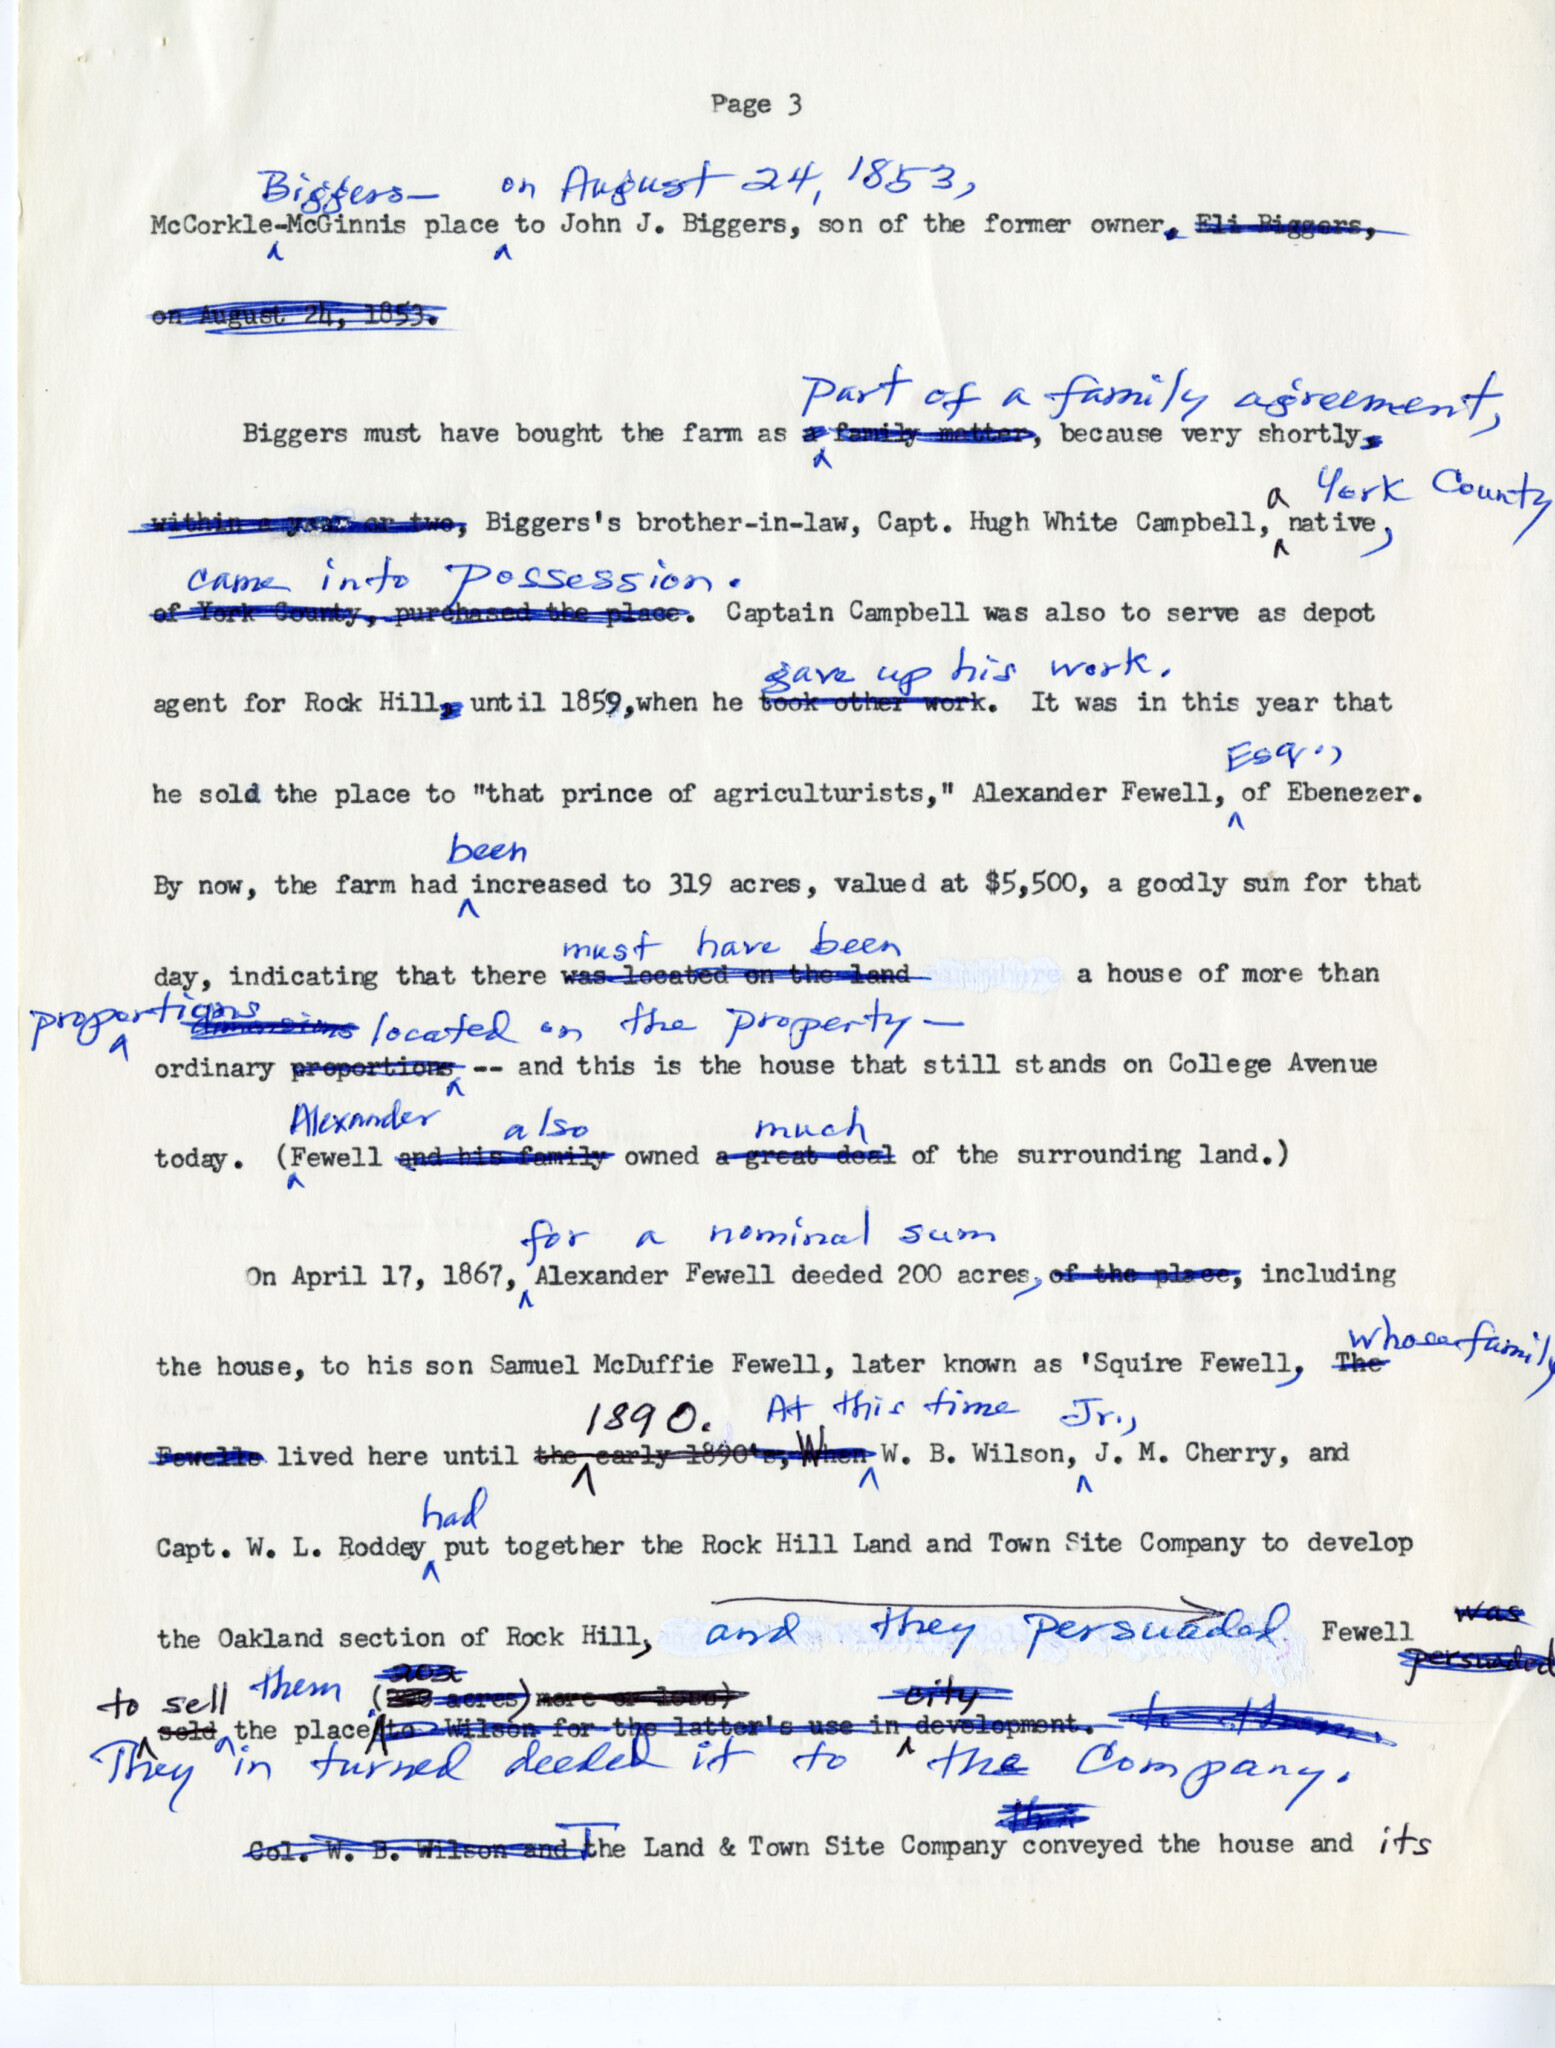 Page 3
Biggers— on August 24, 1853,
McCorkle-McGinnis place to John J. Biggers, son of the former owner. Eli Biggers,
on August 24, 1853.
part of a family agreement,
Biggers must have bought the farm as a family matter, because very shortly,
a York County
within a year or two, Biggers's brother-in-law, Capt. Hugh White Campbell, native,
came into possession.
of York County, purchased the place. Captain Campbell was also to serve as depot
gave up his work.
agent for Rock Hill, until 1859, when he took other work. It was in this year that
Esq.,
he sold the place to "that prince of agriculturists," Alexander Fewell, of Ebenezer.
been
By now, the farm had increased to 319 acres, valued at $5,500, a goodly sum for that
must have been
day, indicating that there was located on the land a house of more than
proportions dimensions located on the property—
ordinary proportions -- and this is the house that still stands on College Avenue
Alexander also much
today. (Fewell and his family owned a great deal of the surrounding land.)
for a nominal sum
On April 17, 1867, Alexander Fewell deeded 200 acres, of the place, including
whose family
the house, to his son Samuel McDuffie Fewell, later known as 'Squire Fewell, The
1890. At this time Jr.,
Fewells lived here until the early 1890's, When W. B. Wilson, J. M. Cherry, and
had
Capt. W. L. Roddey put together the Rock Hill Land and Town Site Company to develop
the Oakland section of Rock Hill, and they persuaded Fewell was
persuaded
to sell them (acres) more or less) city
sold the place to Wilson for the latter's use in development. to them.
They in turned deeded it to the Company.
Col. W. B. Wilson and The Land & Town Site Company conveyed the house and its